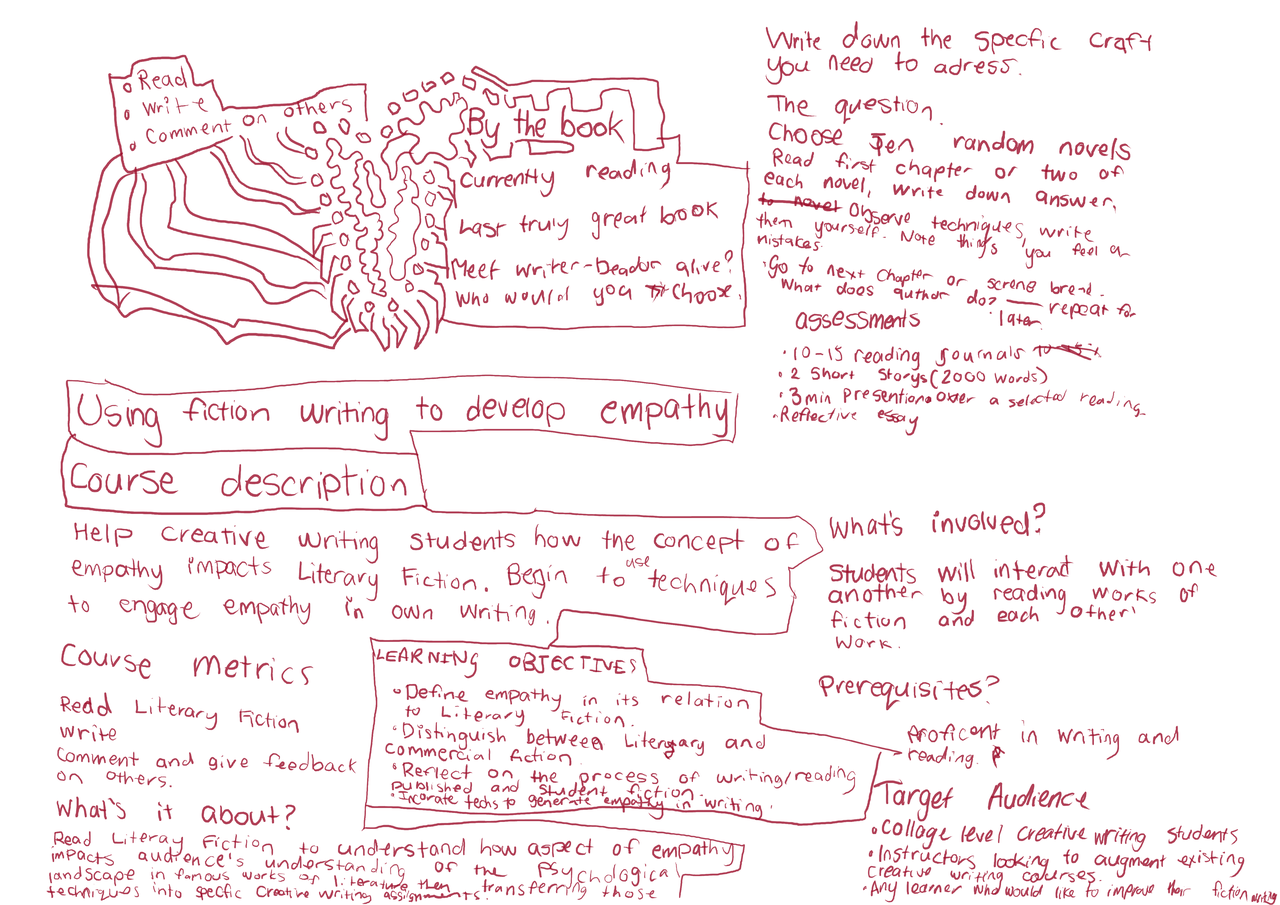 Read
Write
Comment on others
By the book
Currently reading
Last truly great book
Meet writer-Deador alive?
Who would you choose.
Write down the specfic craft
you need to adress.
The question.
Choose Ten random novels
Read first chapter or two of
each novel, write down answer,
to novel Observe techniques, write
them yourself. Note things you feel an
mistakes.
Go to next Chapter or screne bread.
What does author do? — repeat for
later
assessments
10-15 reading Journals
2 Short Storys (2000 words)
3 min Presention over a selected reading
Reflective essay
Using fiction writing to develop empathy
Course description
Help Creative writing Students how the concept of
empathy impacts Literary Fiction. Begin to use techniques
to engage empathy in own writing.
What's involved?
Students will interact with one
another by reading works of
fiction and each other'
work.
Course metrics
Read Literary Fiction
write
Comment and give feedback
on others.
LEARNING OBJECTIVES
Define empathy in its relation
to Literary Fiction.
Distinguish between Litengary and
commercial fiction
Reflect on the process of writing/reading
published and student fiction.
Incorate techs to generate empathy in writing.
Prerequisites?
Proficent in writing and
reading.
Target Audience
Collage level creative writing students
Instructors looking to augment existing
Creative writing courses.
Any learner who would like to improve their fiction writing
What's it about?
Read Literay Fiction to understand how aspect of empathy
impacts audience's understanding of the psychological
landscape in famous works of literature then transferring those
techniques into specfic Creative writing assignments.